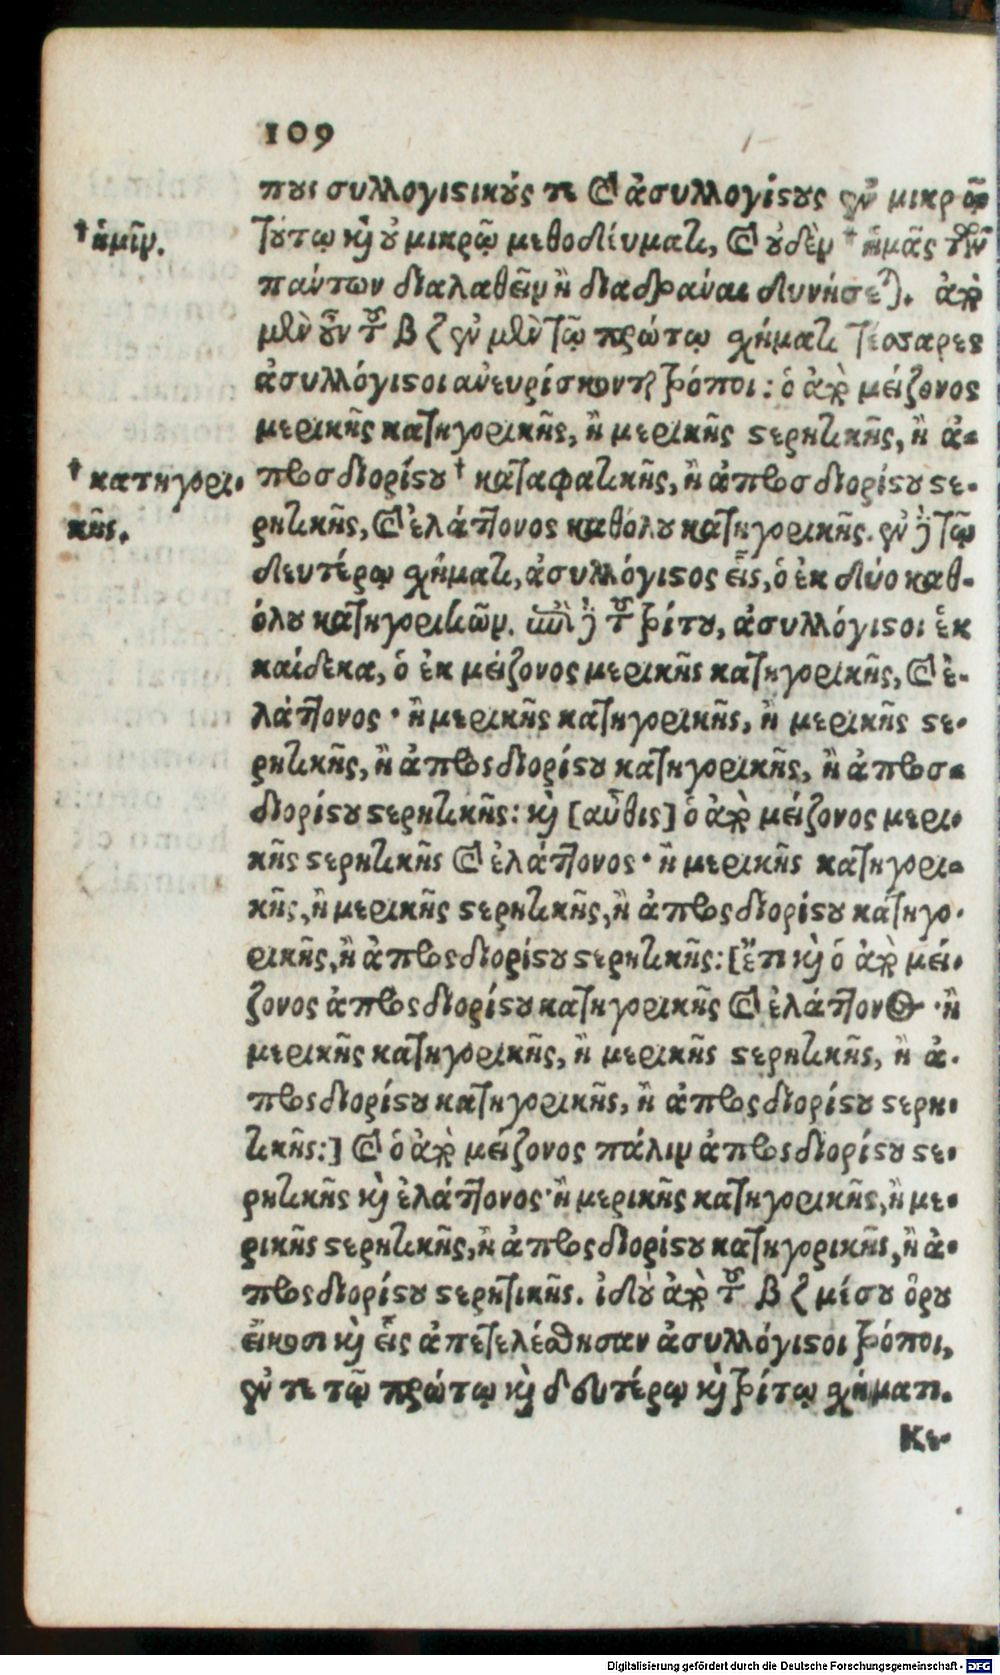 109
πους συλλογιστικούς τε καὶ ἀσυλλογίστους ἐν μικρῷ
†ἡμῖν.
τούτῳ καὶ οὐ μικρῷ μεθοδεύματι, καὶ οὐδὲν † ἡμᾶς τῶν
πάντων διαλαθεῖν ἢ διαδρᾶναι δυνήσεται. ἀπὸ
μὲν οὖν τοῦ β ζ ἐν μὲν τῷ πρώτῳ σχήματι τέσσαρες
ἀσυλλόγιστοι ἀνευρίσκονται τρόποι: ὁ ἀπὸ μείζονος
μερικῆς κατηγορικῆς, ἢ μερικῆς στερητικῆς, ἢ ἀ-
†κατηγορι-
κῆς.
προσδιορίστου † καταφατικῆς, ἢ ἀπροσδιορίστου στε-
ρητικῆς, καὶ ἐλάττονος καθόλου κατηγορικῆς. ἐν δὲ τῷ
δευτέρῳ σχήματι, ἀσυλλόγιστος εἷς, ὁ ἐκ δύο καθ-
όλου κατηγορικῶν. ἐπὶ δὲ τοῦ τρίτου, ἀσυλλόγιστοι ἑκ
καίδεκα, ὁ ἐκ μείζονος μερικῆς κατηγορικῆς, καὶ ἐ-
λάττονος · ἢ μερικῆς κατηγορικῆς, ἢ μερικῆς στε-
ρητικῆς, ἢ ἀπροσδιορίστου κατηγορικῆς, ἢ ἀπροσ-
διορίστου στερητικῆς: καὶ [αὖθις] ὁ ἀπὸ μείζονος μερι-
κῆς στερητικῆς καὶ ἐλάττονος · ἢ μερικῆς κατηγορι-
κῆς, ἢ μερικῆς στερητικῆς, ἢ ἀπροσδιορίστου κατηγο-
ρικῆς, ἢ ἀπροσδιορίστου στερητικῆς: [ἔτι καὶ ὁ ἀπὸ μεί-
ζονος ἀπροσδιορίστου κατηγορικῆς καὶ ἐλάττονος · ἢ
μερικῆς κατηγορικῆς, ἢ μερικῆς στερητικῆς, ἢ ἀ-
προσδιορίστου κατηγορικῆς, ἢ ἀπροσδιορίστου στερη-
τικῆς:] καὶ ὁ ἀπὸ μείζονος πάλιν ἀπροσδιορίστου στε-
ρητικῆς καὶ ἐλάττονος · ἢ μερικῆς κατηγορικῆς, ἢ με-
ρικῆς στερητικῆς, ἢ ἀπροσδιορίστου κατηγορικῆς, ἢ ἀ-
προσδιορίστου στερητικῆς. ἰδοὺ ἀπὸ τοῦ β ζ μέσου ὅρου
εἴκοσι καὶ εἷς ἀπετελέσθησαν ἀσυλλόγιστοι τρόποι,
ἔν τε τῷ πρώτῳ καὶ δευτέρῳ καὶ τρίτῳ σχήματι.
Κε-
Digitalisierung gefördert durch die Deutsche Forschungsgemeinschaft - DFG